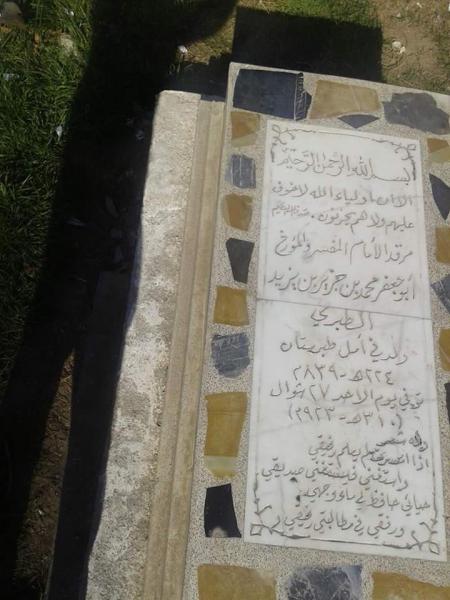 بسم الله الرحمن الرحيم
الا ان اولياء الله لا خوف
عليهم ولا هم يحزنون، صدق الله العظيم
مرقد الأمام المفسر والمؤرخ
أبو جعفر محمد بن جرير بن يزيد
الطبري
ولد في أمل طبرستان
٢٢٤هـ - ٨٣٩م
توفي يوم الاحد ٢٧ شوال
(٣١٠هـ - ٩٢٣م)
وله شعر
اذا اعسرت لم يعلم رفيقي
واستغني فيستغني صديقي
حيائي حافظ لي ماء وجهي
ورفقي في مطالبتي رفيقي